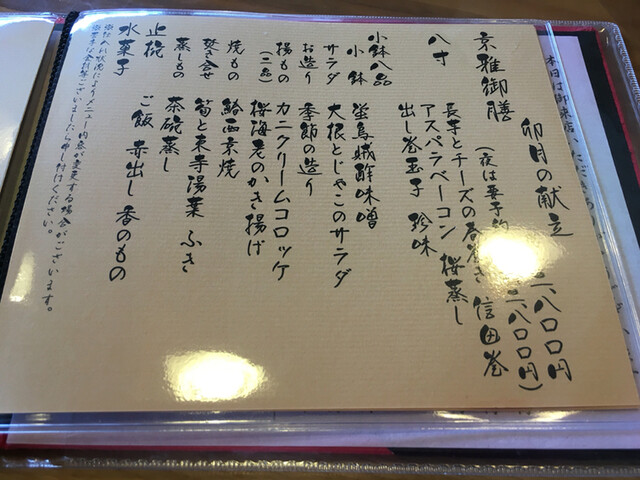 卯月の献立
京雅御膳 二、八〇〇円
(夜は要予約 二、八〇〇円)
八寸 長芋とチーズの春巻き 信田巻
アスパラベーコン 桜蒸し
出し巻玉子 珍味
小鉢八品
小鉢 蛍烏賊酢味噌
サラダ 大根とじゃこのサラダ
お造り 季節の造り
揚もの カニクリームコロッケ
(二品) 桜海老のかき揚げ
焼もの 鮐西京焼
炊き合せ 筍と東寺湯葉 ふき
蒸しもの 茶碗蒸し
止椀 ご飯 赤出し 香のもの
水菓子
御座いましたら申し付けください。
本日は御来店いただき